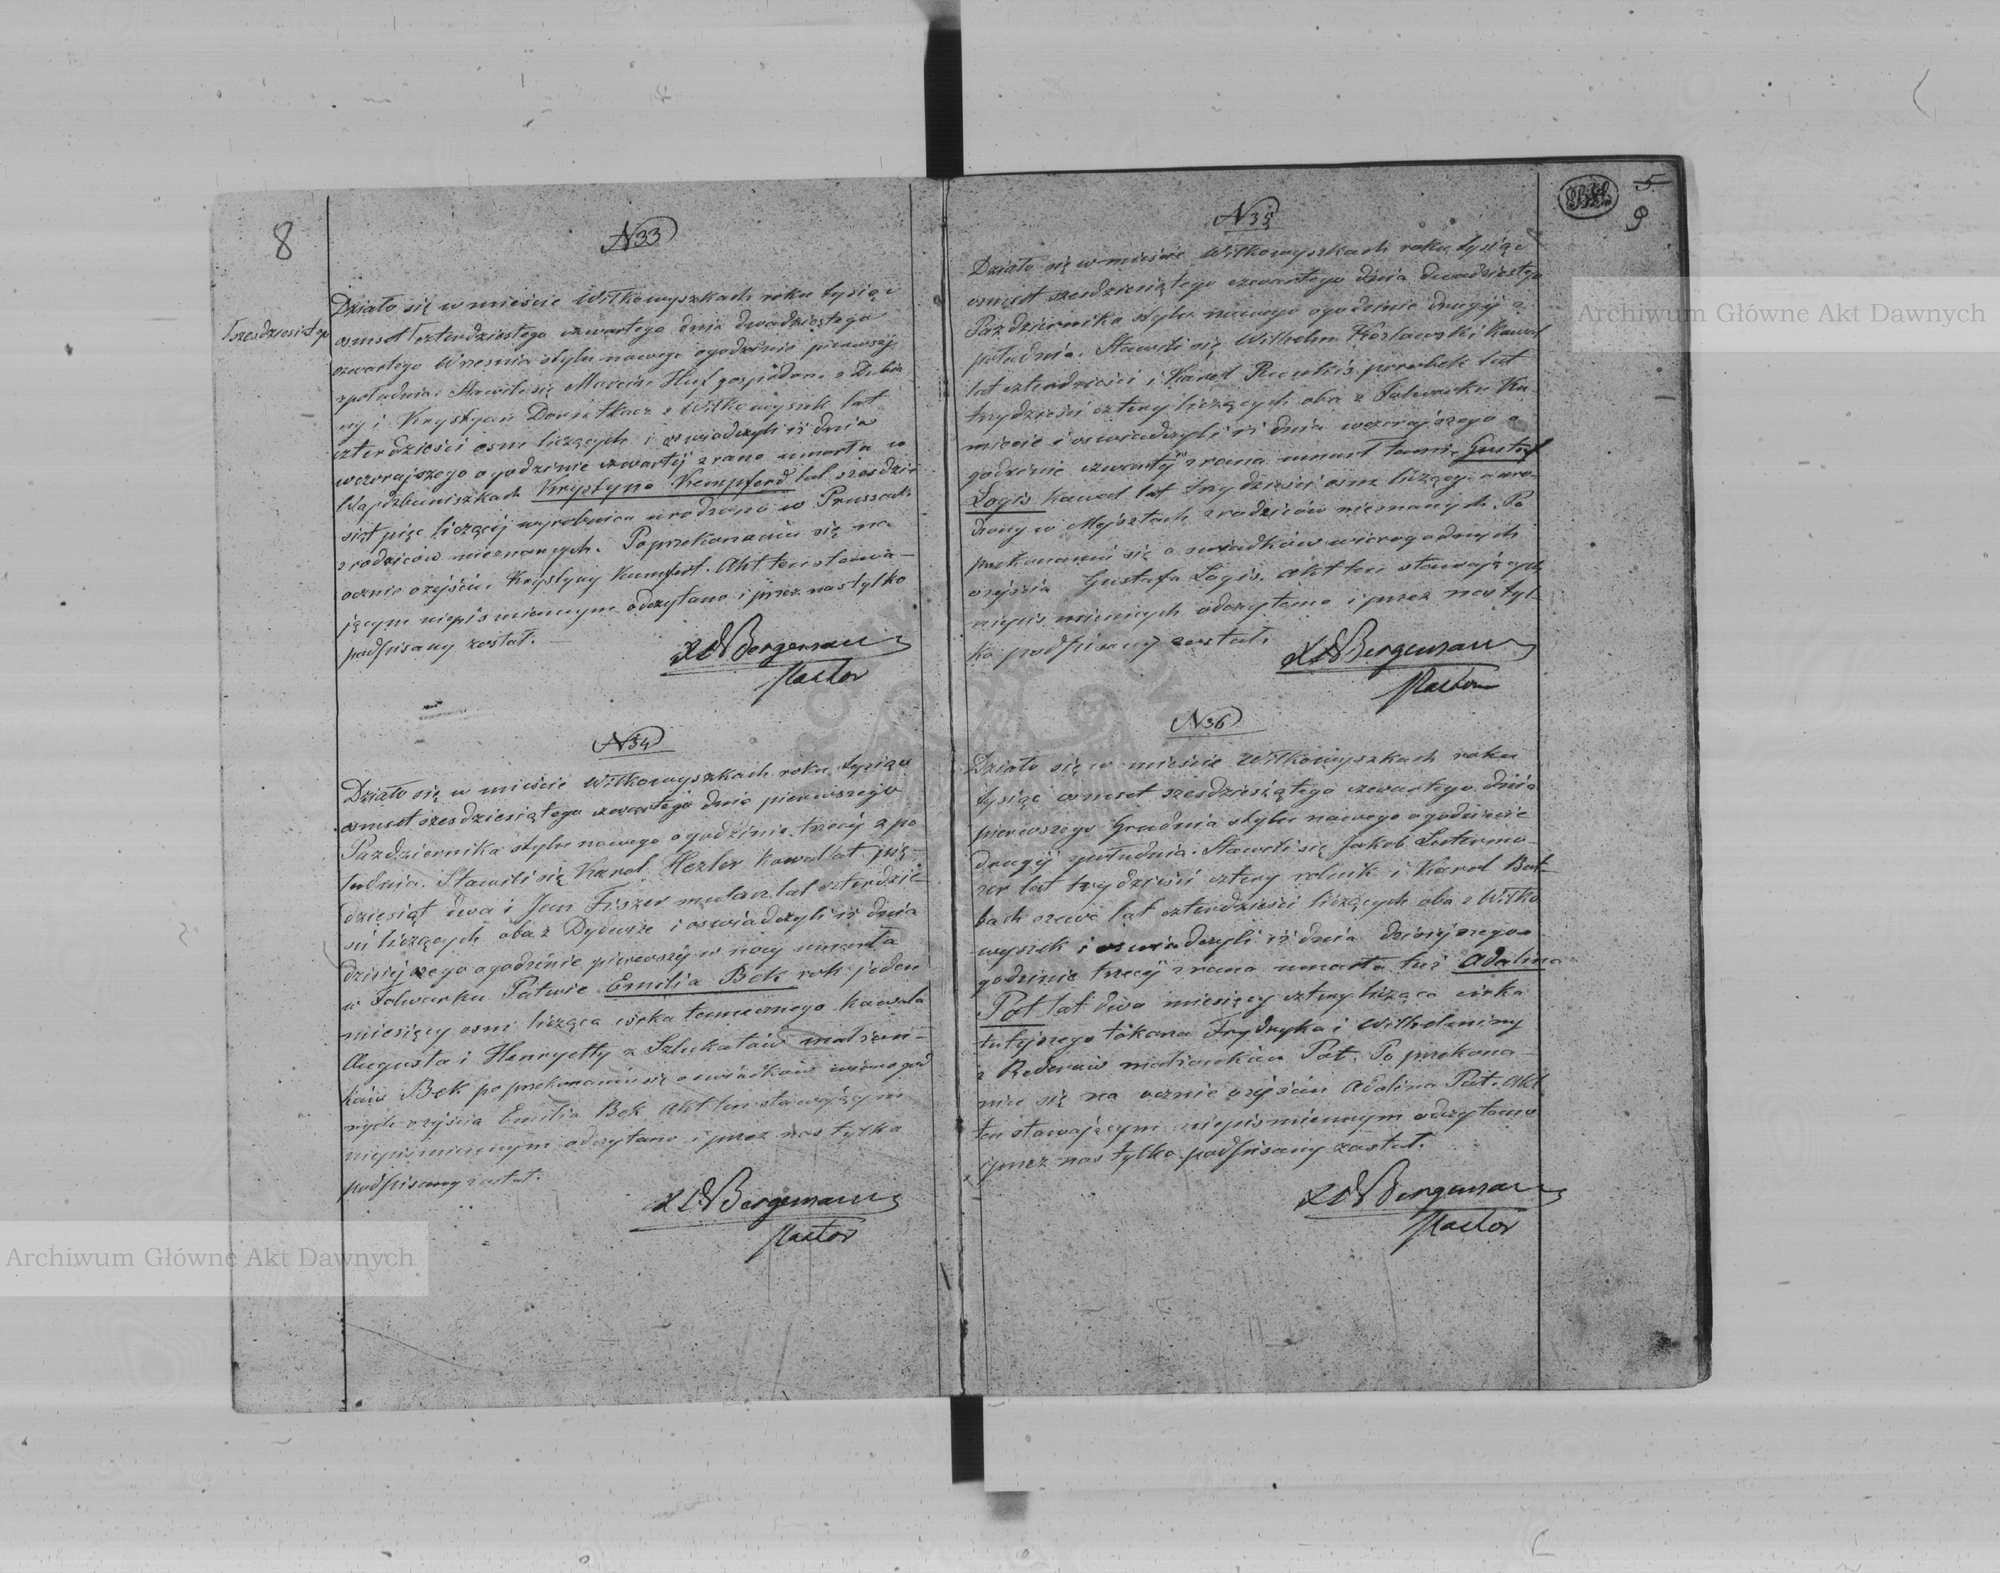 8
N 33
Działo się w mieście Wiłkowyszkach roku tysiąc
szesdziesiątego
osmset czterdziestego czwartego dnia dwadziestego
czwartego Wrzesnia stylu nowego o godzinie pierwszej
z południa. Stawili się Marcin Huf gospodarz z Dubin
ny i Krystyan tkacz z Wiłkowyszek lat
czterdzieści osm liczących i oswiadczyli iż dnia
wczorajszego o godzinie czwartej z rana umarła w
Wajdzbuniszkach Krystyna Kempferd lat szesdzie
siąt pięc liczącej wyrobnica urodzona w Prussach
z rodziców nieznanych. Po przekonaniu się na
ocznie o zejściu Krystyny Kumfert. Akt ten stawa-
jącym niepismiennym odczytano i przez nas tylko
podpisany został.
Bergemann
Pastor
N 34
Działo się w mieście Wiłkowyszkach roku tysiąc
osmset szesdziesiątego czwartego dnia pierwszego
Pazdziernika stylu nowego o godzinie trzeciej z po
łudnia. Stawili się Karol Hezler kowal lat pię-
dziesiąt dwa i Jan Fiszer mularz lat czterdzie-
sci liczących oba z Dydwiże i oswiadczyli iż dnia
dzisiejszego o godzinie pierwszej w nocy umarła
w Folwarku Patwie Emilia Bek rok jeden
miesięcy osm licząca córka tamecznego kowala
Augusta i Henryetty z małżon-
ków Bek po przekonaniu się o swiadków wiarogod
nych zejścia Emilia Bek Akt ten stawającym
niepismiennym odczytano i przez nas tylko
podpisany został.
Bergemann
Pastor
5
9
N 35
Działo się w mieście Wiłkowyszkach roku tysiąc
osmset szesdziesiątego czwartego dnia dwadziestego
Pazdziernika stylu nowego o godzinie drugiej z
południa. Stawili się Wilhelm Kozlowski kowal
lat czterdzieści i Karol parobek lat
trzydzieści cztery liczących oba z Folwarku Ka
mimie i oswiadczyli iż dnia wczorajszego o
godzinie czwartej z rana umarł tamże Gustaf
Logis kowal lat trzydzieści osm liczący a uro-
dzony w Mejsztach z rodziców nieznanych. Po
przekonaniu się o swiadków wiarogodnych
zejścia Gustafa Logis. Akt ten stawających
niepismiennych odczytano i przez nas tyl
ko podpisany został.
Bergemann
Pastor
N 36
Działo się w mieście Wiłkowyszkach roku
tysiąc osmset szesdziesiątego czwartego dnia
pierwszego Grudnia stylu nowego o godzinie
drugiej z południa. Stawili się Jakob Lutermo-
zer lat trzydzieści cztery rolnik i Karol But-
bach szewc lat czterdzieści liczących oba z Wiłko
wyszek i oswiadczyli iż dnia dzisiejszego o
godzinie trzeciej z rana umarła tuż Adalina
Pot lat dwa miesięcy cztery licząca córka
tutejszego tokarza Frydryka i Wilhelminy
z Rederów małżonków Pot. Po przekona-
niu się na ocznie zejściu Adalina Pot. Akt
ten stawającym niepismiennym odczytano
i przez nas tylko podpisany został.
Bergemann
Pastor
Archiwum Główne Akt Dawnych
Archiwum Główne Akt Dawnych